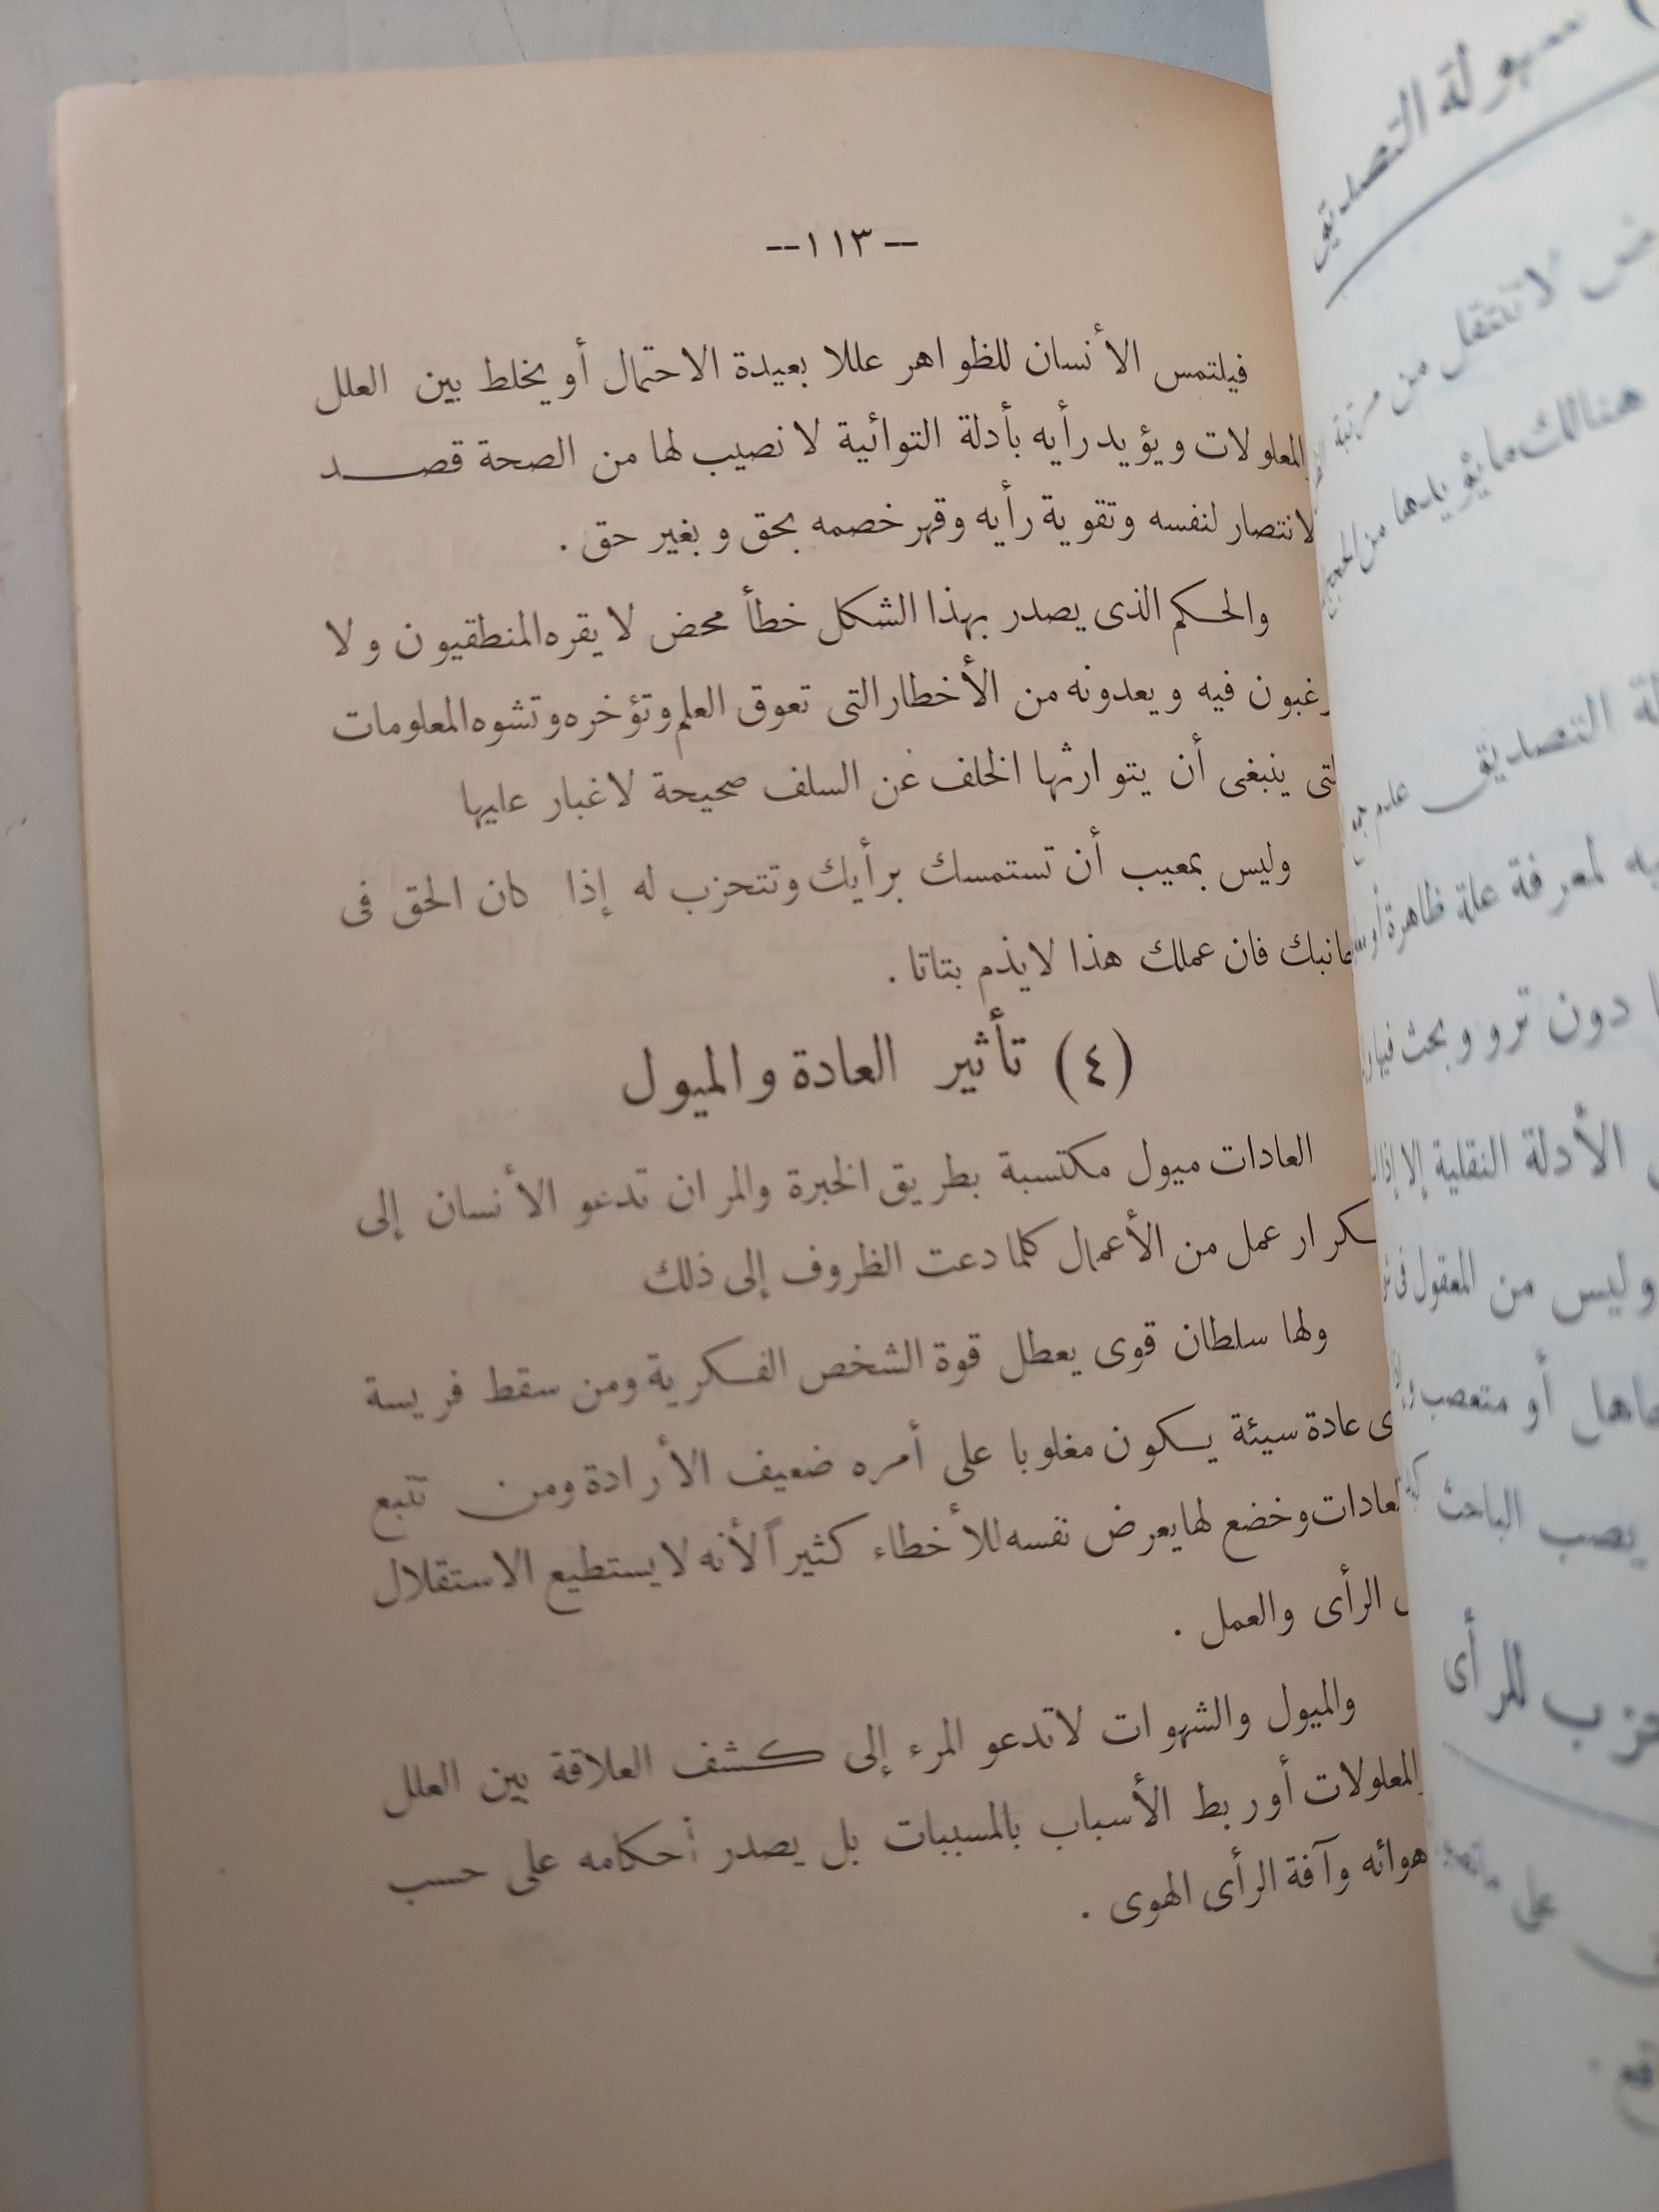 --١١٣--
فيلتمس الأنسان للظواهر عللا بعيدة الاحتمال أو يخلط بين العلل
المعلولات ويؤيد رأيه بأدلة التوائية لا نصيب لها من الصحة قصد
لانتصار لنفسه وتقوية رأيه وقهر خصمه بحق وبغير حق .
والحكم الذى يصدر بهذا الشكل خطأ محض لا يقره المنطقيون ولا
رغبون فيه ويعدونه من الأخطار التى تعوق العلم وتؤخره وتشوه المعلومات
لتى ينبغى أن يتوارثها الخلف عن السلف صحيحة لاغبار عليها
وليس بمعيب أن تستمسك برأيك وتتحزب له إذا كان الحق فى
جانبك فان عملك هذا لايذم بتاتا .
(٤) تأثير العادة والميول
العادات ميول مكتسبة بطريق الخبرة والمران تدعو الأنسان إلى
كرار عمل من الأعمال كلما دعت الظروف إلى ذلك
ولها سلطان قوى يعطل قوة الشخص الفكرية ومن سقط فريسة
ى عادة سيئة يكون مغلوبا على أمره ضعيف الأرادة ومن تتبع
لعادات وخضع لها يعرض نفسه للأخطاء كثيراً لأنه لا يستطيع الاستقلال
الرأى والعمل .
والميول والشهوات لاتدعو المرء إلى كشف العلاقة بين العلل
المعلولات أو ربط الأسباب بالمسببات بل يصدر أحكامه على حسب
هوائه وآفة الرأى الهوى .
سهولة التصديق
لا تنتقل من مرتبة
هنالك ما يؤيدها من
التصديق
لمعرفة علة ظاهرة
دون ترو وبحث فيها
الأدلة النقلية إلا
وليس من المعقول
أو متعصب
يصب الباحث
للرأى
على